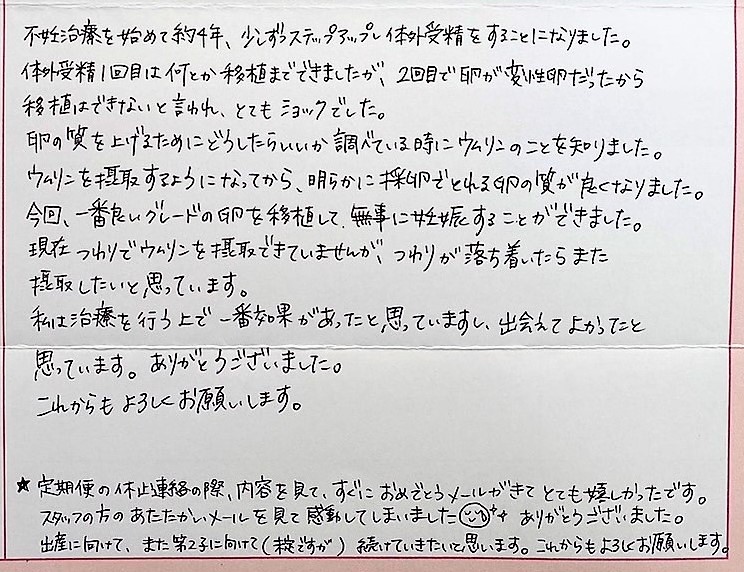 不妊治療を始めて約4年、少しずつステップアップし体外受精をすることになりました。
体外受精1回目は何とか移植までできましたが、2回目で卵が変性卵だったから
移植はできないと言われ、とてもショックでした。
卵の質を上げるためにどうしたらいいか調べている時にウムリンのことを知りました。
ウムリンを摂取するようになってから、明らかに採卵でとれる卵の質が良くなりました。
今回、一番良いグレードの卵を移植して、無事に妊娠することができました。
現在つわりでウムリンを摂取できていませんが、つわりが落ち着いたらまた
摂取したいと思っています。
私は治療を行う上で一番効果があったと思っていますし、出会えてよかったと
思っています。ありがとうございました。
これからもよろしくお願いします。
★定期便の休止連絡の際、内容を見て、すぐにおめでとうメールがきてとても嬉しかったです。
スタッフの方のあたたかいメールを見て感動してしまいました ありがとうございました。
出産に向けて、また第2子に向けて(未定ですが)続けていきたいと思います。これからもよろしくお願いします。